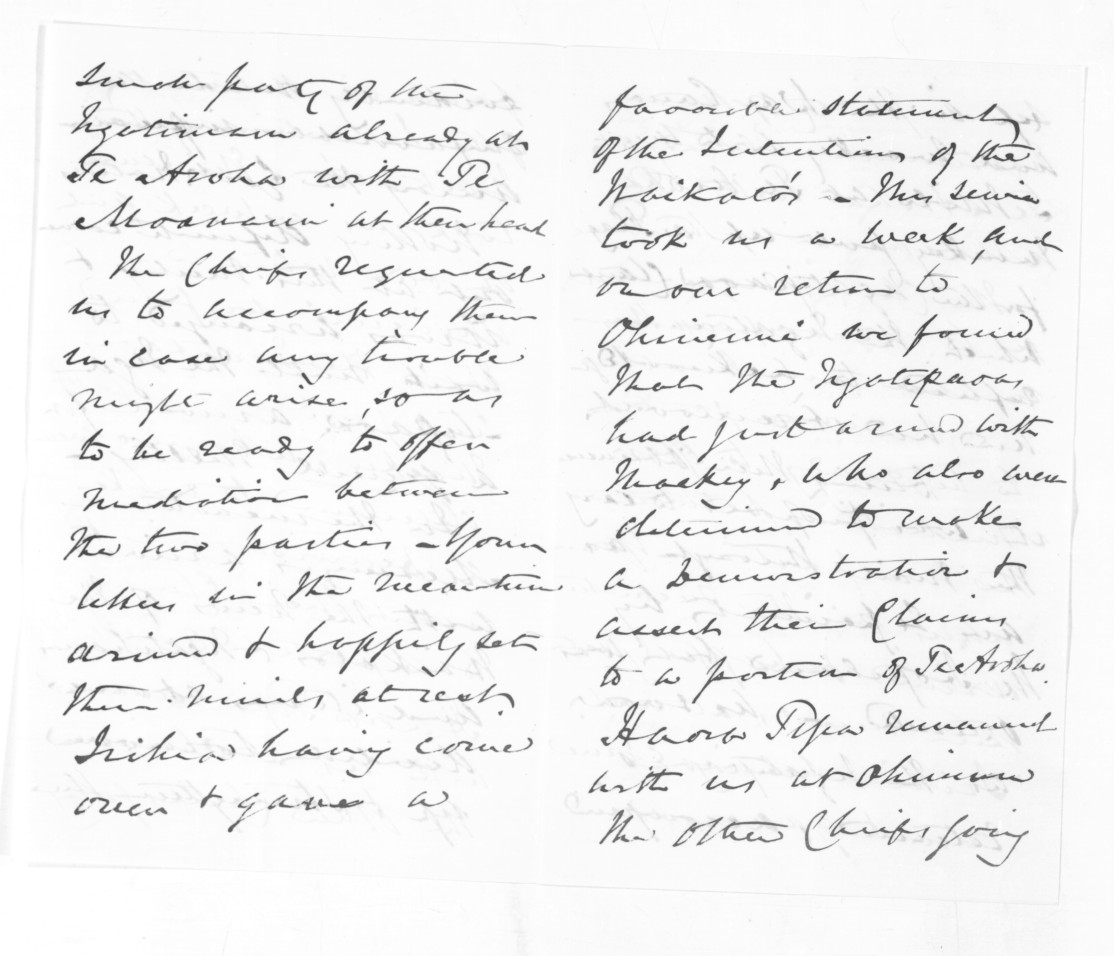 small party of the
Ngatimaru already at
Te Aroha with Te
Moananui at their head
The Chiefs requested
us to accompany them
in case any trouble
might arise, so as
to be ready to offer
mediation between
the two parties - Your
letters in the meantime
arrived & happily set
their minds at rest
having come
over & gave a
favourable statement
of the Intentions of the
Waikato's - This
took us a week, and
on our return to
Ohinemuri we found
that the Ngatipaoas
had just arrived with
Mackey, who also were
determined to make
a Demonstration &
assert their Claims
to a portion of Te Aroha.
Haora Tipa remained
with us at Ohinemuri
the other Chiefs going